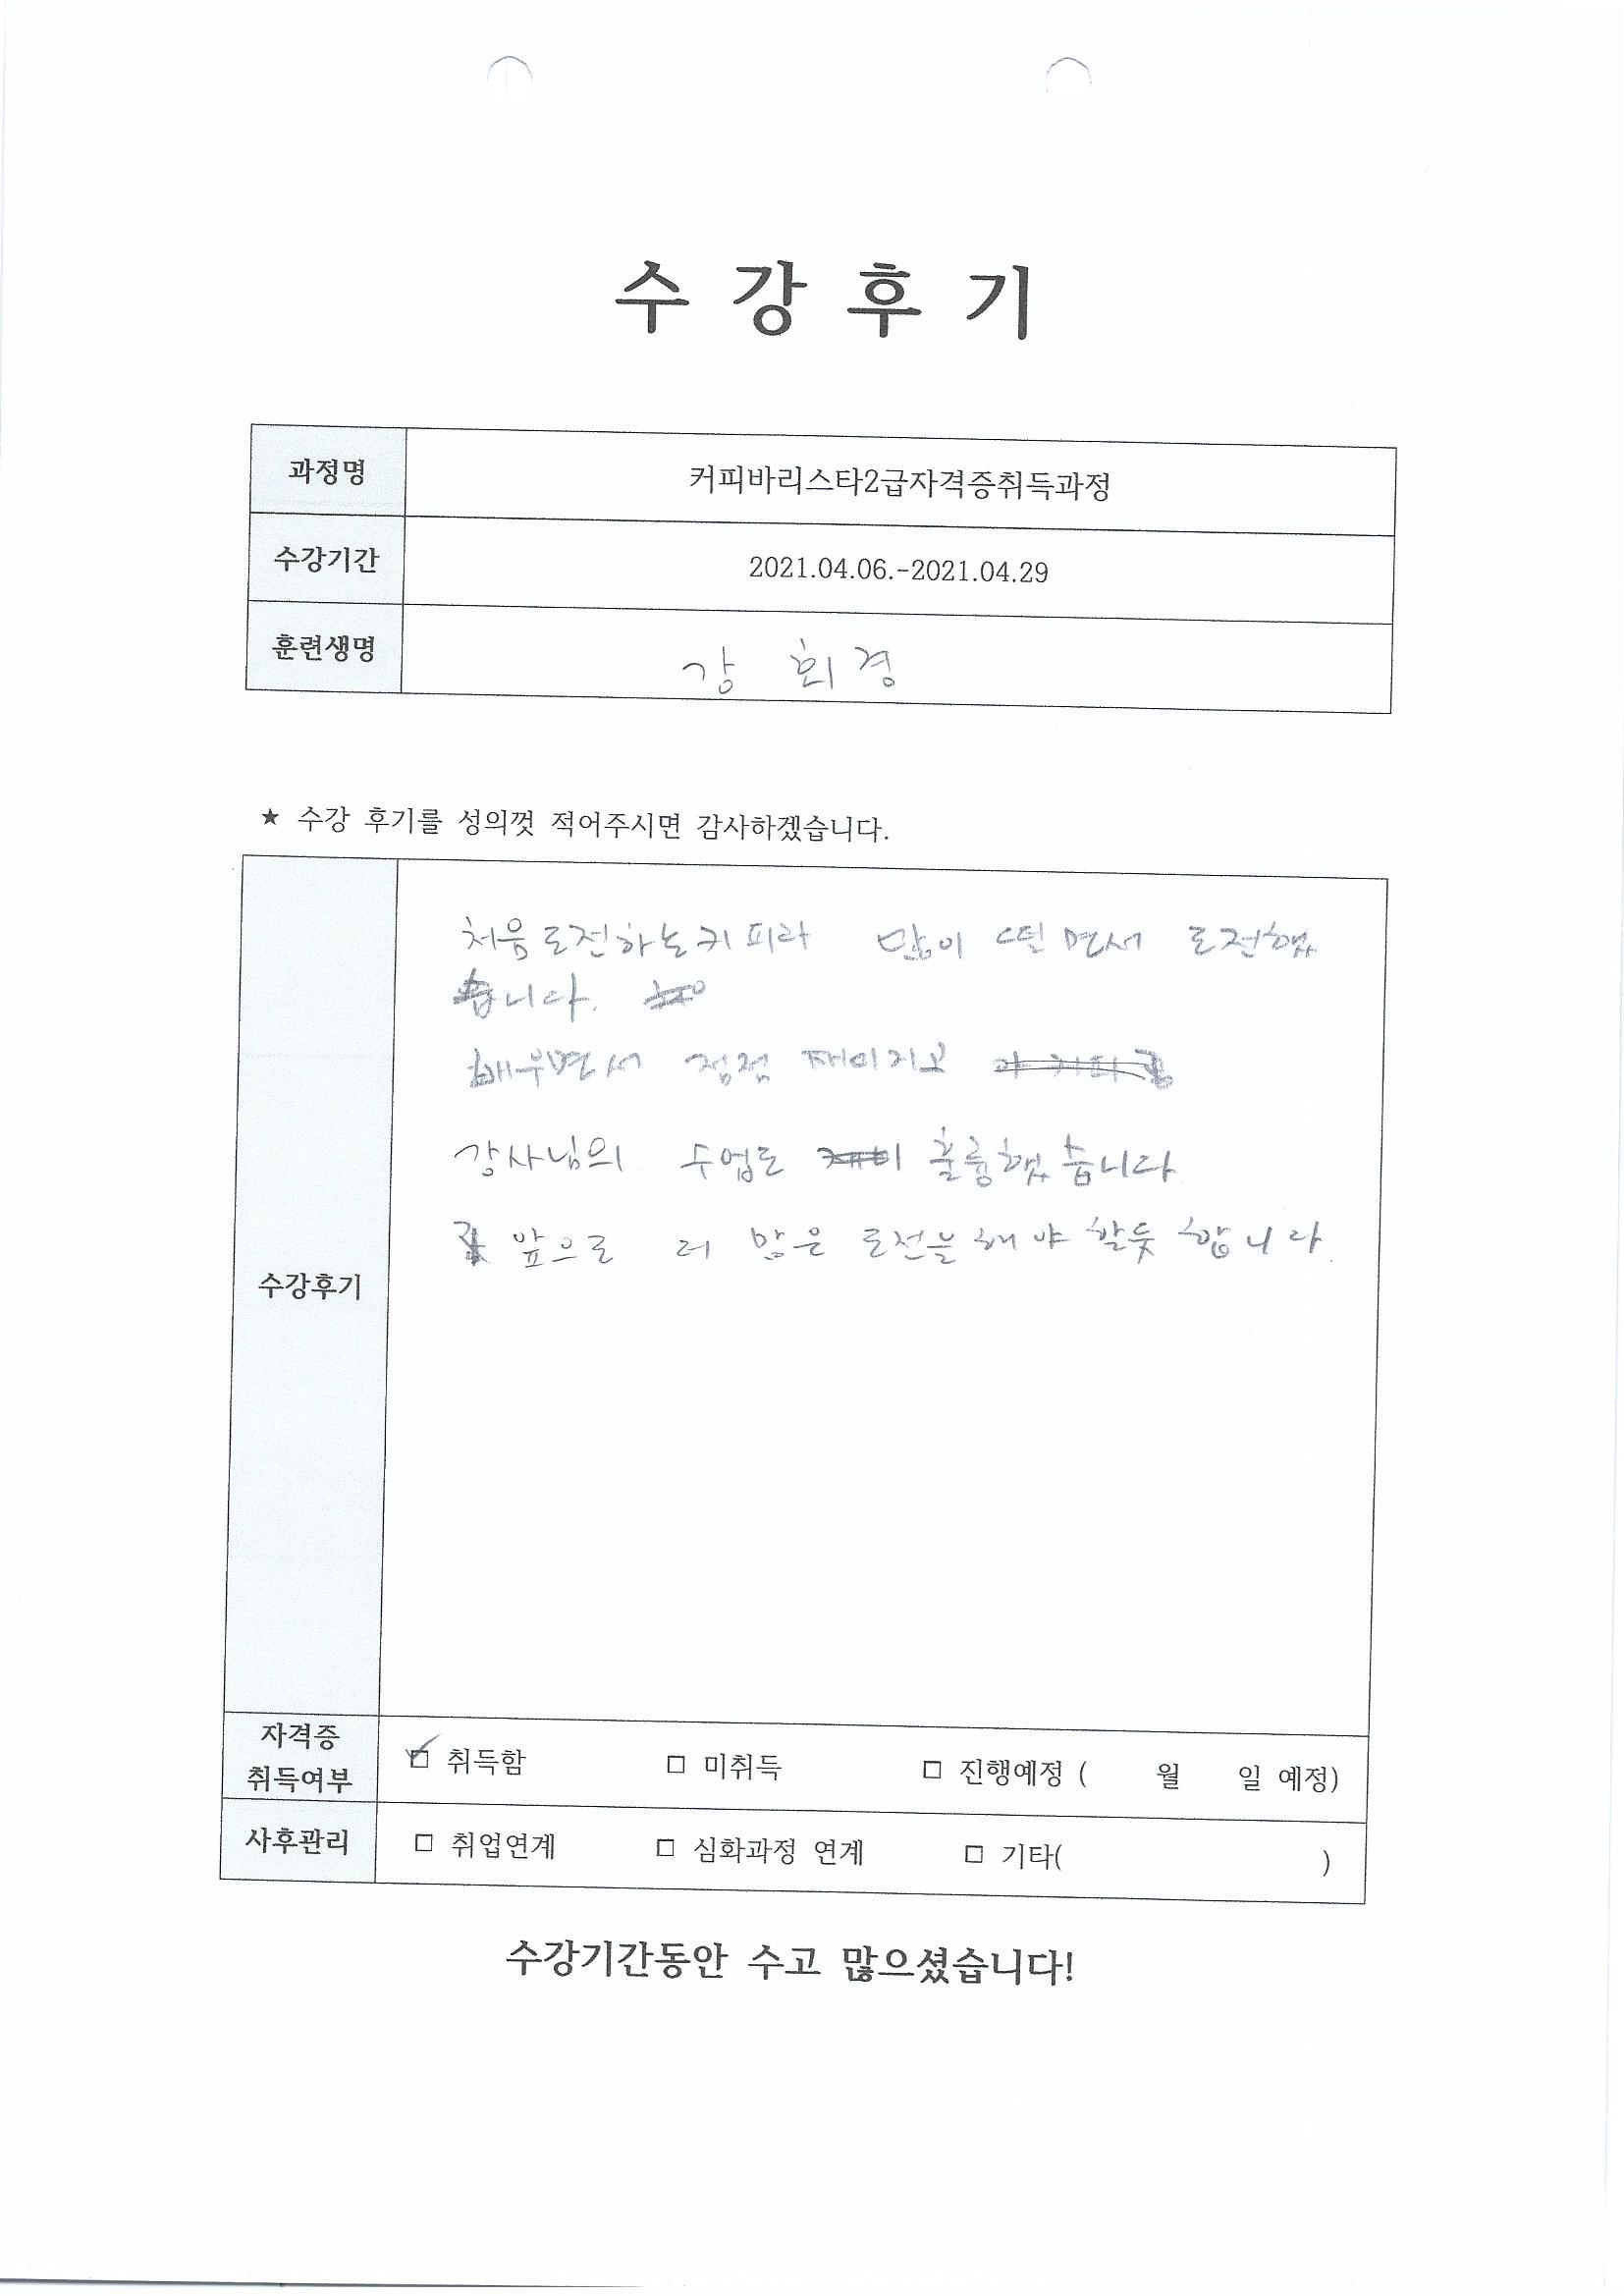 수 강 후 기
과정명 커피바리스타2급자격증취득과정
수강기간 2021.04.06.-2021.04.29
훈련생명 강 회 경
★ 수강 후기를 성의껏 적어주시면 감사하겠습니다.
처음 도전하는 커피라 많이 떨면서 도전했
습니다.
배우면서 점점 재미지고
강사님의 수업도 훌륭했습니다
앞으로 더 많은 도전을 해야 할듯 합니다.
수강후기
자격증
취득여부 ☑ 취득함 □ 미취득 □ 진행예정 ( 월 일 예정)
사후관리 □ 취업연계 □ 심화과정 연계 □ 기타( )
수강기간동안 수고 많으셨습니다!